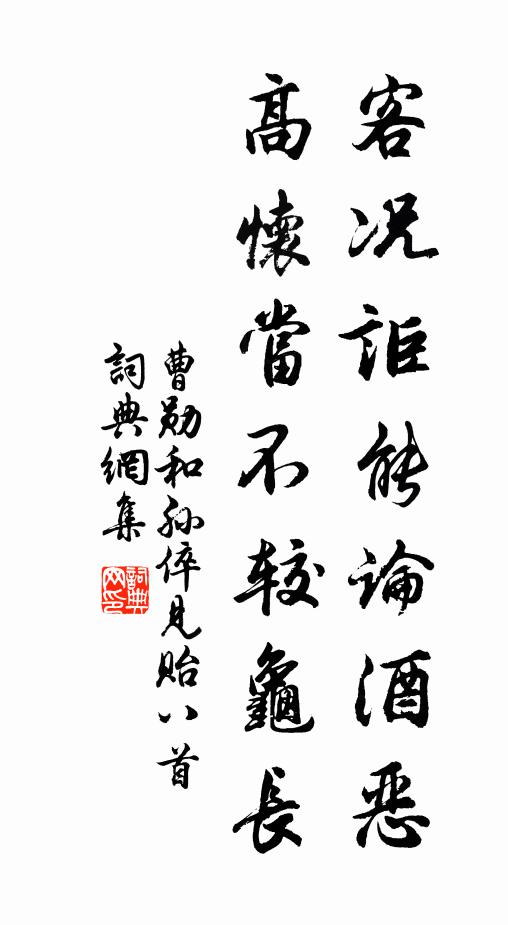 客况詎能論酒惡
高懷當不較龜長
曹勛和孫倅見貽八首
詞典網集
詞典網印